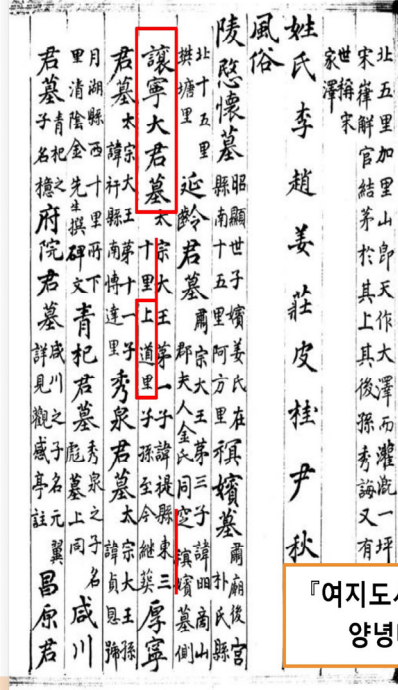 北五里加里山郎天作大澤而灌漑一坪
宋 解官結茅於其上其後孫秀誨又有
世稱宋
家澤
姓氏 李 趙 姜 莊 皮 桂 尹 秋
風俗
陵愍懷墓 昭顯世子嬪姜氏在縣南十五里阿方里 嬪墓 肅廟後宮朴氏縣
北十五里樊塘里 延齡君墓 肅宗大王第三子諱昍商山郡夫人金氏同窆 嬪墓側
讓寧大君墓 太宗大王第一子諱禔縣東三十里上道里子孫至今継葬 厚寧
君墓 太宗大王第十一子諱衦縣南博達里 秀泉君墓 太宗大王孫諱貞恩號
月湖縣西十里所下里清陰金先生撰碑文 青杞君墓 秀泉之子名彪墓上同 咸川
君墓 青杞之子名檍 府院君墓 咸川之子名元翼詳見觀感亭註 昌原君
『여지도
양녕